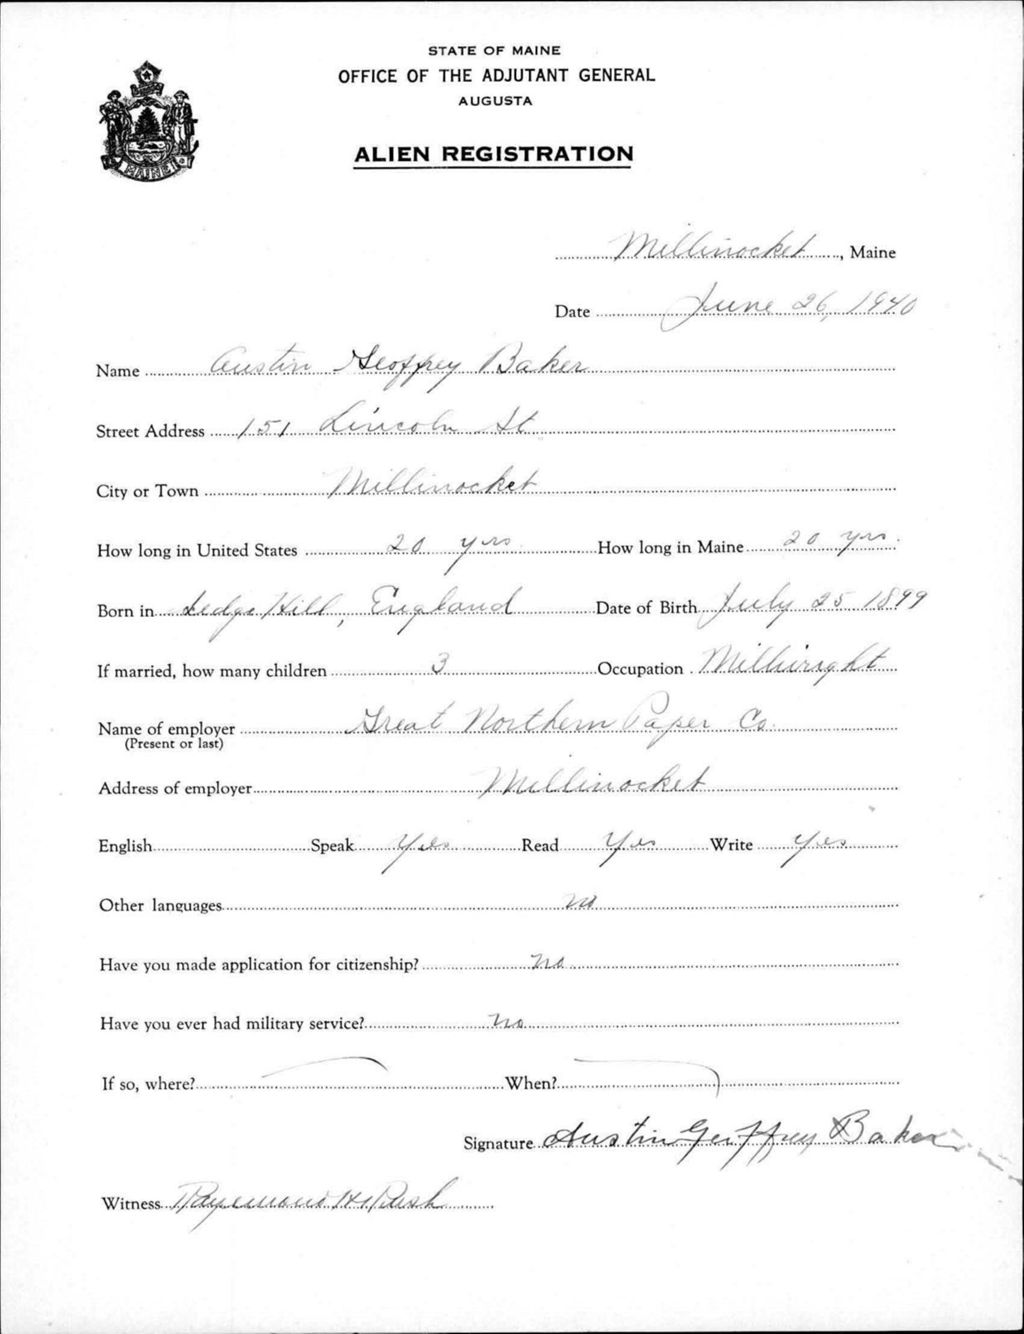 STATE OF MAINE
OFFICE OF THE ADJUTANT GENERAL
AUGUSTA
ALIEN REGISTRATION
MAINE
Millinocket, Maine
Date June 26, 1940
Name Austin Geoffrey Baker
Street Address 151 Lincoln St
City or Town Millinocket
How long in United States 20 yrs How long in Maine 20 yrs.
Born in Ledge Hill, England Date of Birth July 25 1899
If married, how many children 3 Occupation Millwright
Name of employer Great Northern Paper Co.
(Present or last)
Address of employer Millinocket
English Speak Yes Read Yes Write Yes
Other languages no
Have you made application for citizenship? no
Have you ever had military service? no
If so, where? When?
Signature Austin Geoffrey Baker
Witness Raymond H Rush